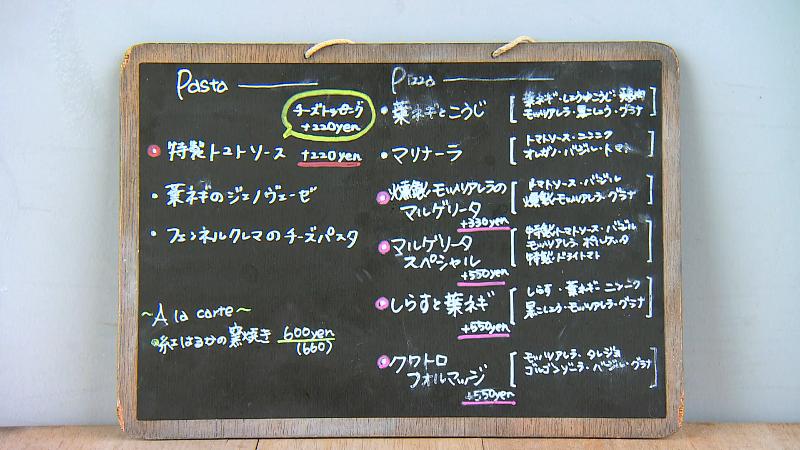 Pasta
チーズトッピング
+220yen
特製トマトソース +220yen
・葉ネギのジェノヴェーゼ
・フェンネルクレマのチーズパスタ
~A la carte~
紅はるかの窯焼き 600yen
(660)
Pizza
・葉ネギとこうじ
[葉ネギ・しょうゆこうじ・鶏肉
モッツァレラ・黒こしょう・グラナ]
・マリナーラ
[トマトソース・ニンニク
オレガノ・バジル・トマト]
燻製モッツァレラの
マルゲリータ
+330yen
[トマトソース・バジル
燻製モッツァレラ・グラナ]
マルゲリータ
スペシャル
+550yen
[特製トマトソース・バジル
モッツァレラ
特製ドライトマト]
しらすと葉ネギ
+550yen
[しらす・葉ネギ・ニンニク
黒こしょう・モッツァレラ・グラナ]
クワトロ
フォルマッジ
+550yen
[モッツァレラ・タレジョ
ゴルゴンゾーラ・バジル・グラナ]